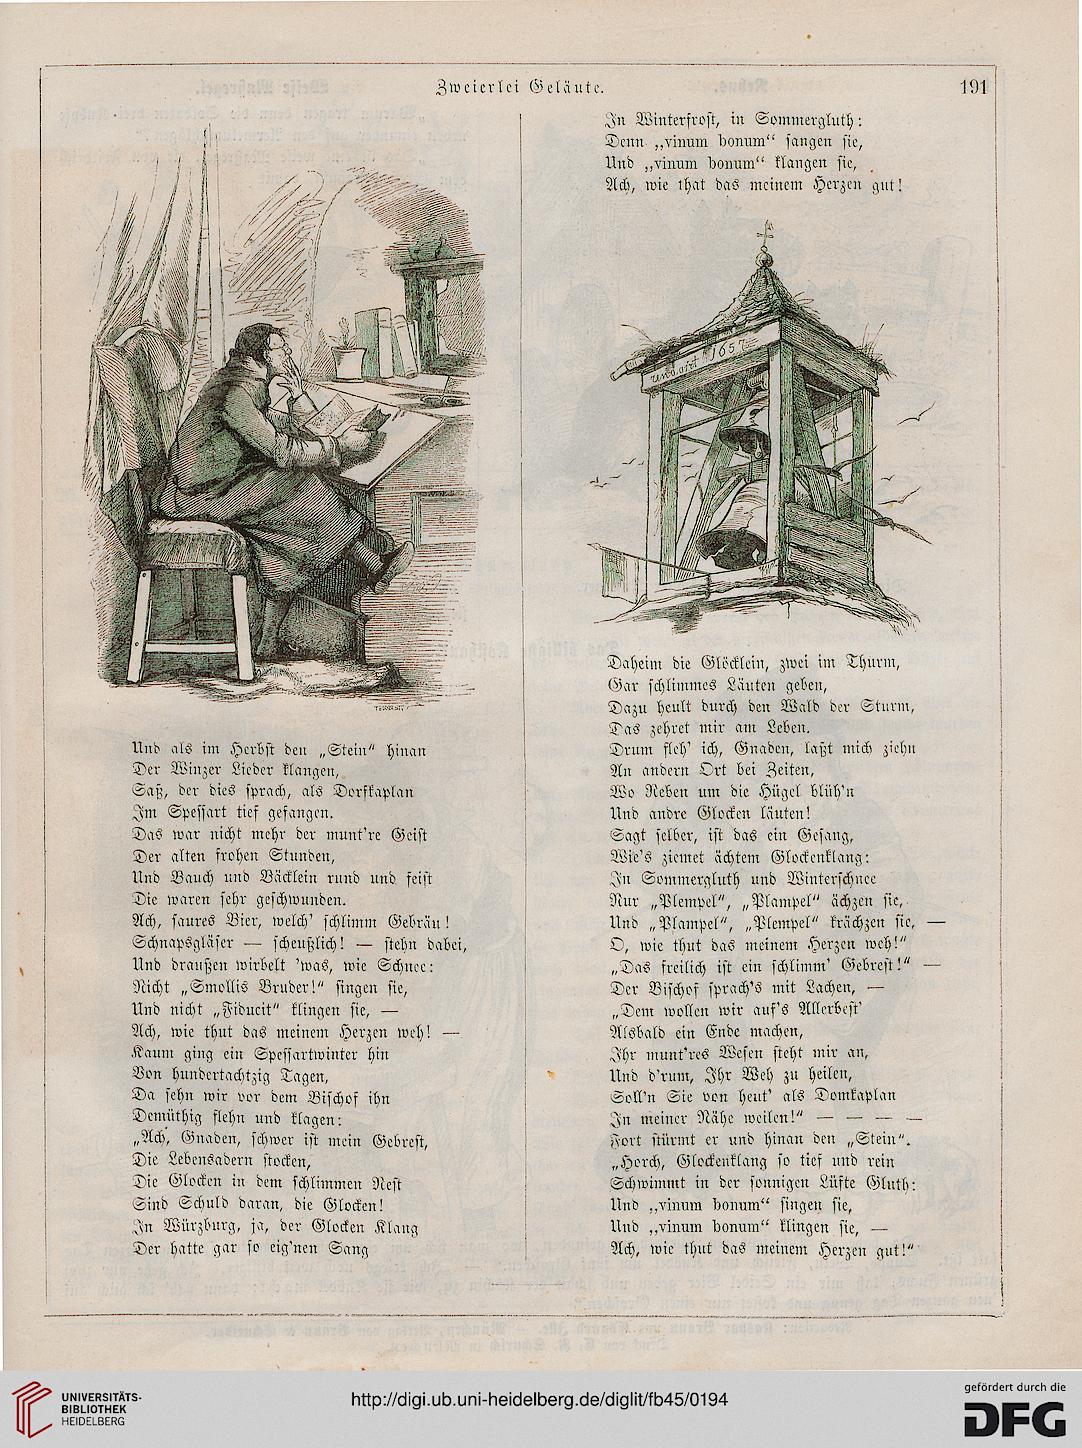 Zweierlei Geläute.
191
Und als im Herbst den „Stein" hinan
Der Winzer Lieder klangen,
Saß, der dies sprach, als Dorfkaplan
Im Spessart tief gefangen.
Das war nicht mehr der munt're Geist
Der alten frohen Stunden,
Und Bauch und Bäcklein rund und feist
Die waren sehr geschwunden.
Ach, saures Bier, welch' schlimm Gebräu!
Schnapsgläser — scheußlich! — stehn dabei,
Und draußen wirbelt 'was, wie Schnee:
Nicht „Smollis Bruder!" singen sie,
Und nicht „Fiducit" klingen sie, —
Ach, wie thut das meinem Herzen weh! —
Kaum ging ein Spessartwinter hin
Von hundertachtzig Tagen,
Da sehn wir vor dem Bischof ihn
Demüthig flehn und klagen:
„Ach, Gnaden, schwer ist mein Gebrest,
Die Lebensadern stocken,
Die Glocken in dem schlimmen Nest
Sind Schuld daran, die Glocken!
In Würzburg, ja, der Glocken Klang
Der hatte gar so eig'nen Sang
In Winterfrost, in Sommergluth:
Denn „vinum bonum" sangen sie,
Und „vinum bonum" klangen sie,
Ach, wie that das meinem Herzen gut!
1657
Daheim die Glöcklein, zwei im Thurm,
Gar schlimmes Läuten geben,
Dazu heult durch den Wald der Sturm,
Das zehret mir am Leben.
Drum fleh' ich, Gnaden, laßt mich ziehn
An andern Ort bei Zeiten,
Wo Reben um die Hügel blüh'n
Und andre Glocken läuten!
Sagt selber, ist das ein Gesang,
Wie's ziemet ächtem Glockenklang:
In Sommergluth und Winterschnee
Nur „Plempel", „Plampel" ächzen sie,
Und „Plampel", „Plempel" krächzen sie, —
O, wie thut das meinem Herzen weh!"
„Das freilich ist ein schlimm' Gebrest!" —
Der Bischof sprach's mit Lachen, —
„Dem wollen wir auf's Allerbest'
Alsbald ein Ende machen,
Ihr munt'res Wesen steht mir an,
Und d'rum, Ihr Weh zu heilen,
Soll'n Sie von heut' als Domkaplan
In meiner Nähe weilen!" — — — —
Fort stürmt er und hinan den „Stein".
„Horch, Glockenklang so tief und rein
Schwimmt in der sonnigen Lüfte Gluth:
Und „vinum bonum" singen sie,
Und „vinum bonum" klingen sie, —
Ach, wie thut das meinem Herzen gut!"
UNIVERSITÄTS-
BIBLIOTHEK
HEIDELBERG
http://digi.ub.uni-heidelberg.de/diglit/fb45/0194
gefördert durch die
DFG